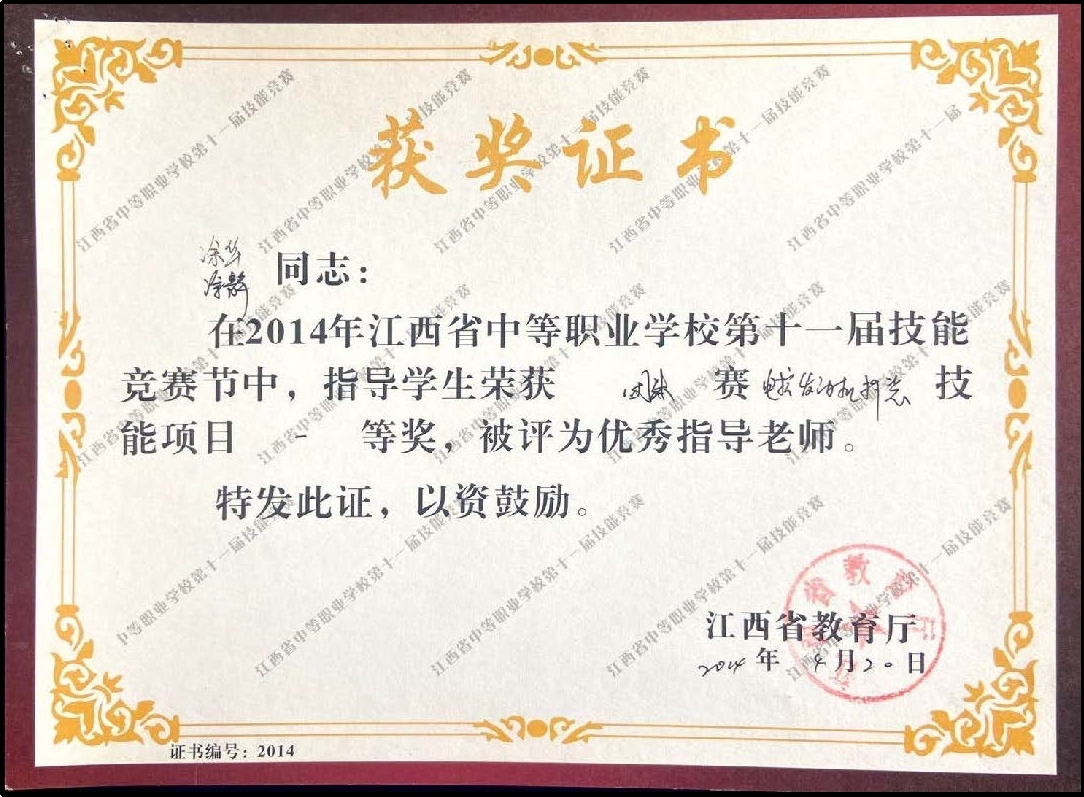 获奖证书
涂华
涂 同志：
在2014年江西省中等职业学校第十一届技能
竞赛节中，指导学生荣获 团体 赛 电控发动机 技
能项目 一 等奖，被评为优秀指导老师。
特发此证，以资鼓励。
江西省教育厅
2014年4月20日
证书编号：2014
江西省中等职业学校第十一届技能竞赛